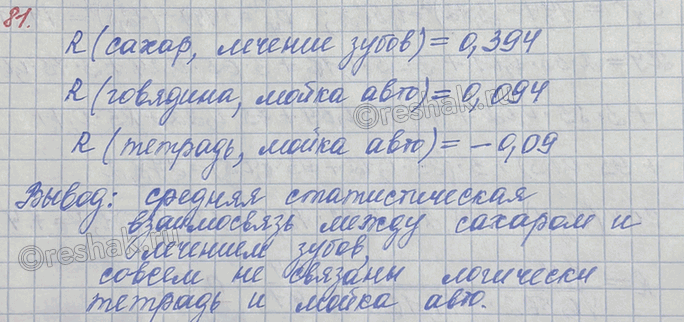 81.
R (сахар, лечение зубов) = 0,394
R (говядина, мойка авто) = 0,094
R (тетрадь, мойка авто) = -0,09
Вывод: средняя статистическая
взаимосвязь между сахаром и
лечением зубов,
совсем не связаны логически
тетрадь и мойка авто.
©reshak.ru
©reshak.ru
©reshak.ru